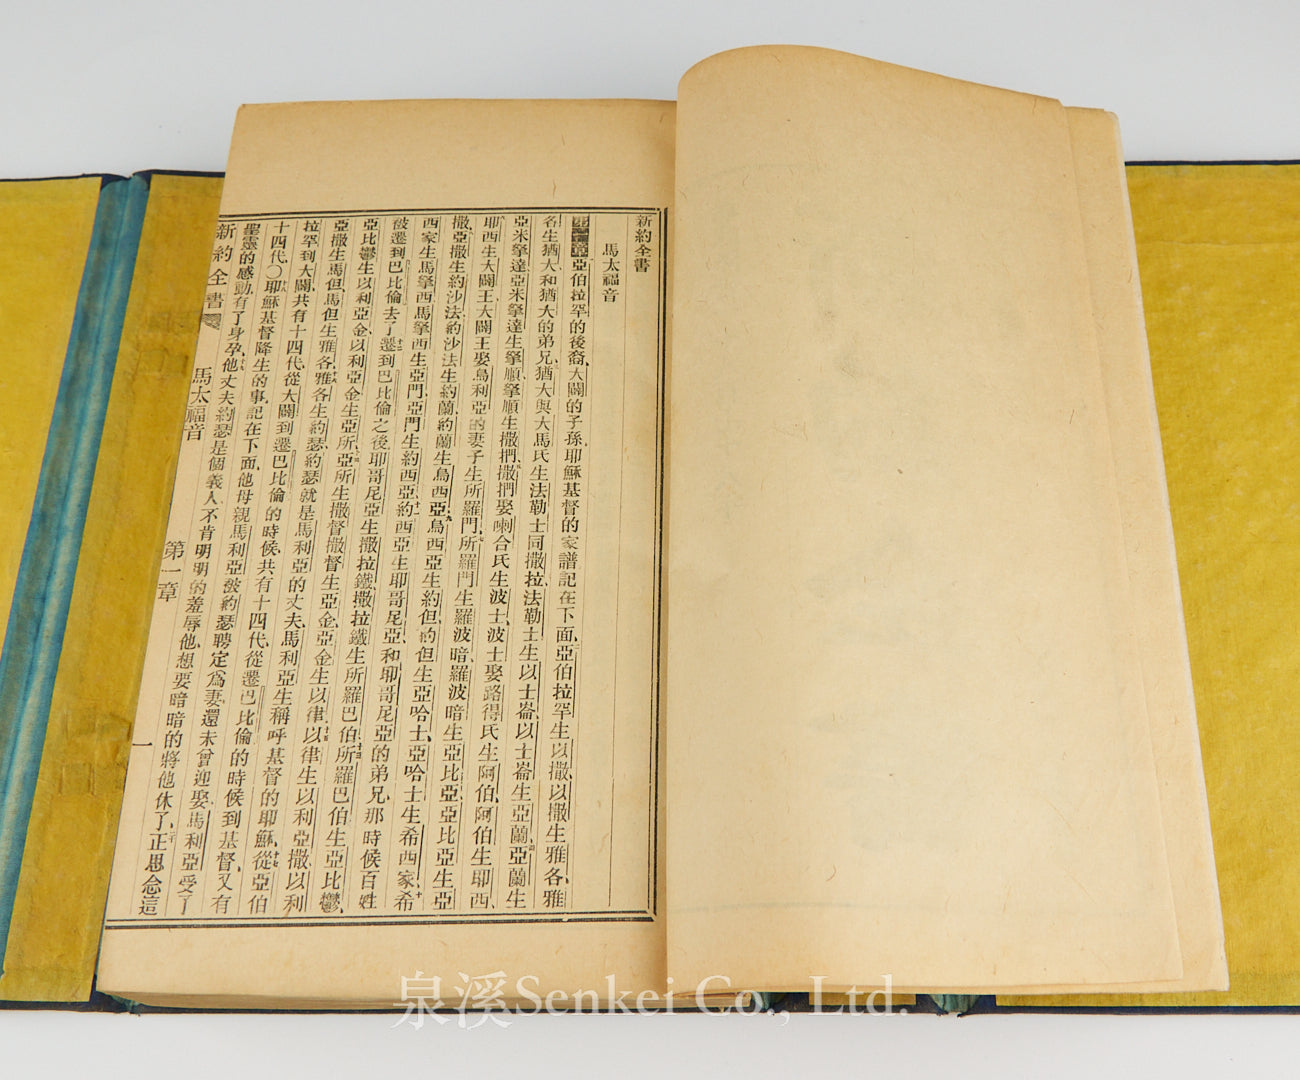 新約全書
馬太福音
第一章亞伯拉罕的後裔、大闢的子孫耶穌基督的家譜記在下面、亞伯拉罕生以撒、以撒生雅各、雅
各生猶大和猶大的弟兄、猶大與大馬氏生法勒士同撒拉、法勒士生以士崙、以士崙生亞蘭、亞蘭生
亞米拏達、亞米拏達生拏順、拏順生撒捫、撒捫娶喇合氏生波士、波士娶路得氏生阿伯、阿伯生耶西、
耶西生大闢王、大闢王娶烏利亞的妻子生所羅門、所羅門生羅波暗、羅波暗生亞比亞、亞比亞生亞
撒、亞撒生約沙法、約沙法生約蘭、約蘭生烏西亞、烏西亞生約但、約但生亞哈士、亞哈士生希西家、希
西家生馬拏西、馬拏西生亞門、亞門生約西亞、約西亞生耶哥尼亞、和耶哥尼亞的弟兄、那時候百姓
被遷到巴比倫去了、遷到巴比倫之後、耶哥尼亞生撒拉鐵、撒拉鐵生所羅巴伯、所羅巴伯生亞比鬱、
亞比鬱生以利亞金、以利亞金生亞所、亞所生撒督、撒督生亞金、亞金生以律、以律生以利亞撒、以利
亞撒生馬但、馬但生雅各、雅各生約瑟、約瑟就是馬利亞的丈夫、馬利亞生稱呼基督的耶穌、從亞伯
拉罕到大闢、共有十四代、從大闢到遷巴比倫的時候、共有十四代、從遷巴比倫的時候到基督、又有
十四代、○耶穌基督降生的事、記在下面、他母親馬利亞被約瑟聘定爲妻、還未曾迎娶、馬利亞受了
聖靈的感動、有了身孕、他丈夫約瑟是個義人、不肯明明的羞辱他、想要暗暗的將他休了、正思念這
新約全書 馬太福音 第一章 一
泉溪Senkei Co., Ltd.